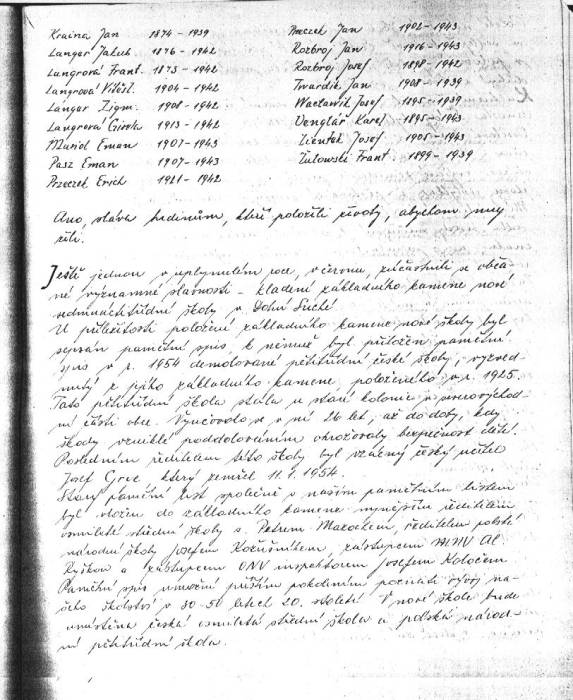 Kraina Jan 1874 - 1939
Langer Jakub. 1876 - 1942
Langrová Frant. 1873 - 1942
Langrová 1904 - 1942
Langer Zigm. 1908 - 1942
Langrová Gizela 1913 - 1942
Maroid Eman 1907 - 1943
Pasz Eman 1907 - 1943
Przeczek Erich 1921 - 1942
Preczek Jan 1902 - 1943
Rozbroj Jan 1916 - 1943
Rozbroj Josef 1898 - 1942
Tvardík Jan 1908 - 1939
Wacławik Josef 1895 - 1939
Venglář Karel 1895 - 1943
Zientek Josef 1905 - 1943
Żulowski Frant 1899 - 1939
Ano, sláva hrdinům, kteří položili životy, abychom my
žili.
Ještě jednou v uplynulém roce, v červnu, zúčastnili se obča-
né významné slavnosti - kladení základního kamene nové
sedmnáctitřídní školy v Dolní Suché
U příležitosti položení základního kamene nové školy byl
sepsán pamětní spis k němuž byl přiložen pamětní
spis v r. 1954 demolované pětitřídní české školy, vyzved-
nutý z jejího základního kamene, položeného v r. 1925.
Tato pětitřídní škola stála u staré kolonie v severovýchod-
ní části obce. Vyučovalo se v ní 26 let, až do doby, kdy
škody vzniklé poddolováním ohrožovaly bezpečnost dětí.
Posledním ředitelem této školy byl vzácný český učitel
Josef Grec který zemřel 11. 1. 1954.
Starý pamětní list společně s naším pamětním listem
byl vložen do základního kamene nynějším ředitelem
osmileté střední školy s. Petrem Mazochem, ředitelem polské
národní školy Josefem Kožušníkem, zástupcem MNV Al.
Ryškou a zástupcem ONV inspektorem Josefem Koločem
Pamětní spis umožní příštím pokolením poznati vývoj na-
šeho školství v 30-50 letech 20. století V nové škole bude
umístěna česká osmiletá střední škola a polská národ-
ní pětitřídní škola.